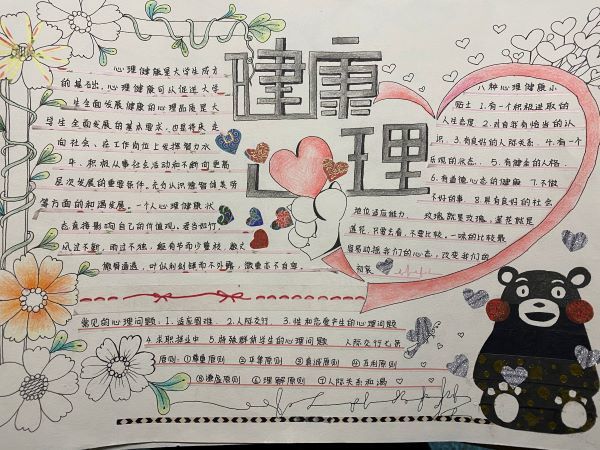 健康
心理
心理健康是大学生成才
的基础,心理健康可以促进大学
生全面发展健康的心理品质是大
学生全面发展的基本要求,也是将来走
向社会、在工作岗位上发挥智力水
平、积极从事社会活动和不断向更高
层次发展的重要条件。充分认识德智体美劳
等方面的和谐发展。一个人心理健康状
态直接影响自己的价值观。
风过不
微雨通透,
八种心理健康小
贴士 1.有个积极进取的
人生态度 2.对自我有恰当的认
识 3.有良好的人际关系。4.有一个
乐观的心态。5.有健全的人格
6.有道德心态的健康 7.不做
不好的事 8.具有良好的社会
地位适应能力。玫瑰就是玫瑰,莲花就是
莲花,只要去看,不要比较。一味的比较最
容易动摇我们的心态,改变我们的
初衷
常见的心理问题:1.适应困难 2.人际交往 3.性和恋爱产生的心理问题
4.求职择业中 5.特殊群体学生的心理问题 人际交行七条
原则:①尊重原则 ②平等原则 ③真诚原则 ④互利原则
⑤适度原则 ⑥理解原则 ⑦人际关系和谐